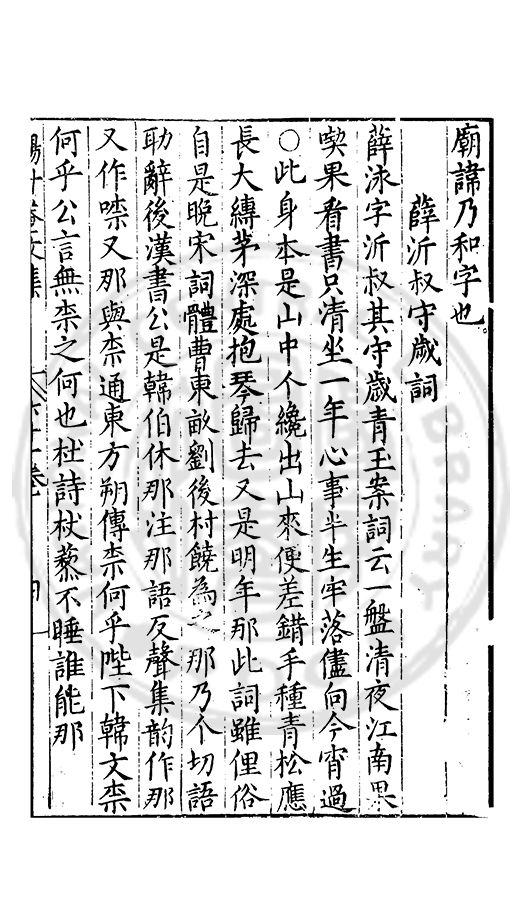 廟諱乃和字也
薛沂叔守歲詞
薛泳字沂叔其守歲青玉案詞云一盤清夜江南果
喫果看書只清坐一年心事半生牢落儘向今宵過
○此身本是山中个纔出山來便差錯手種青松應
長大縛茅深處抱琴歸去又是明年那此詞雖俚俗
自是晚宋詞體曹東畝劉後村饒為之那乃个切語
助辭後漢書公是韓伯休那注那語反聲集韵作那
又作㖠又那與柰通東方朔傳柰何乎陛下韓文柰
何乎公言無柰之何也杜詩杖藜不睡誰能那